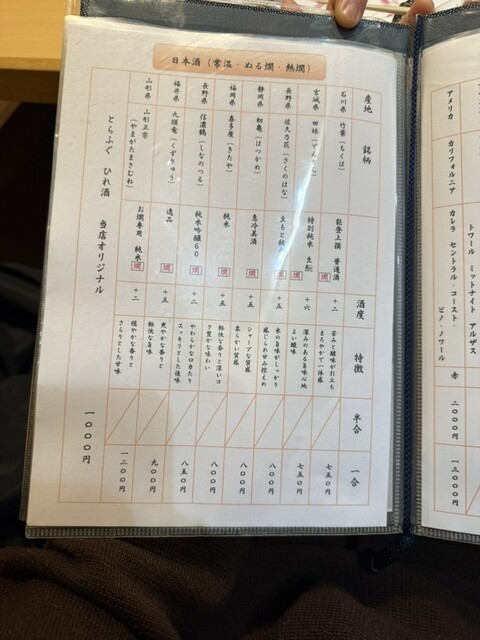 日本酒（常温・ぬる燗・熱燗）
産地 銘柄 酒度 特徴 半合 一合
石川県 竹葉（ちくは） 能登上撰 普通酒 燗 +二 苦みと酸味が引立ち まろやかで一体感 七五〇円
宮城県 田林 特別純米 生酛 燗 +六 深みのある旨味心地よい酸味 七五〇円
長野県 佐久乃花（さくのはな） 燗 +五 米の旨味がしっかり感じられ甘み控えめ 八〇〇円
静岡県 初亀（はつかめ） 急冷美酒 燗 +五 シャープな質感 柔らかい質感 八〇〇円
福岡県 喜多屋（きたや） 純米 燗 +五 軽快な香りと深いコク豊かな味わい 八〇〇円
長野県 信濃鶴（しなのつる） 純米吟醸60 燗 +二 やわらかな口当たり スッキリとした後味 八五〇円
福井県 九頭竜（くずりゅう） 逸品 燗 +五 爽やかな香りと 軽快な旨味 九〇〇円
山形県 山形正宗（やまがたまさむね） お燗専用 純米 燗 +二 穏やかな香りと さらりとした甘味 一二〇〇円
とらふぐ ひれ酒 当店オリジナル 一〇〇〇円
アメリカ カリフォルニア カレラ セントラル・コースト・
ピノ・ノワール 赤 二〇〇〇円 一三〇〇〇円
トワール ミットナイト アルザス